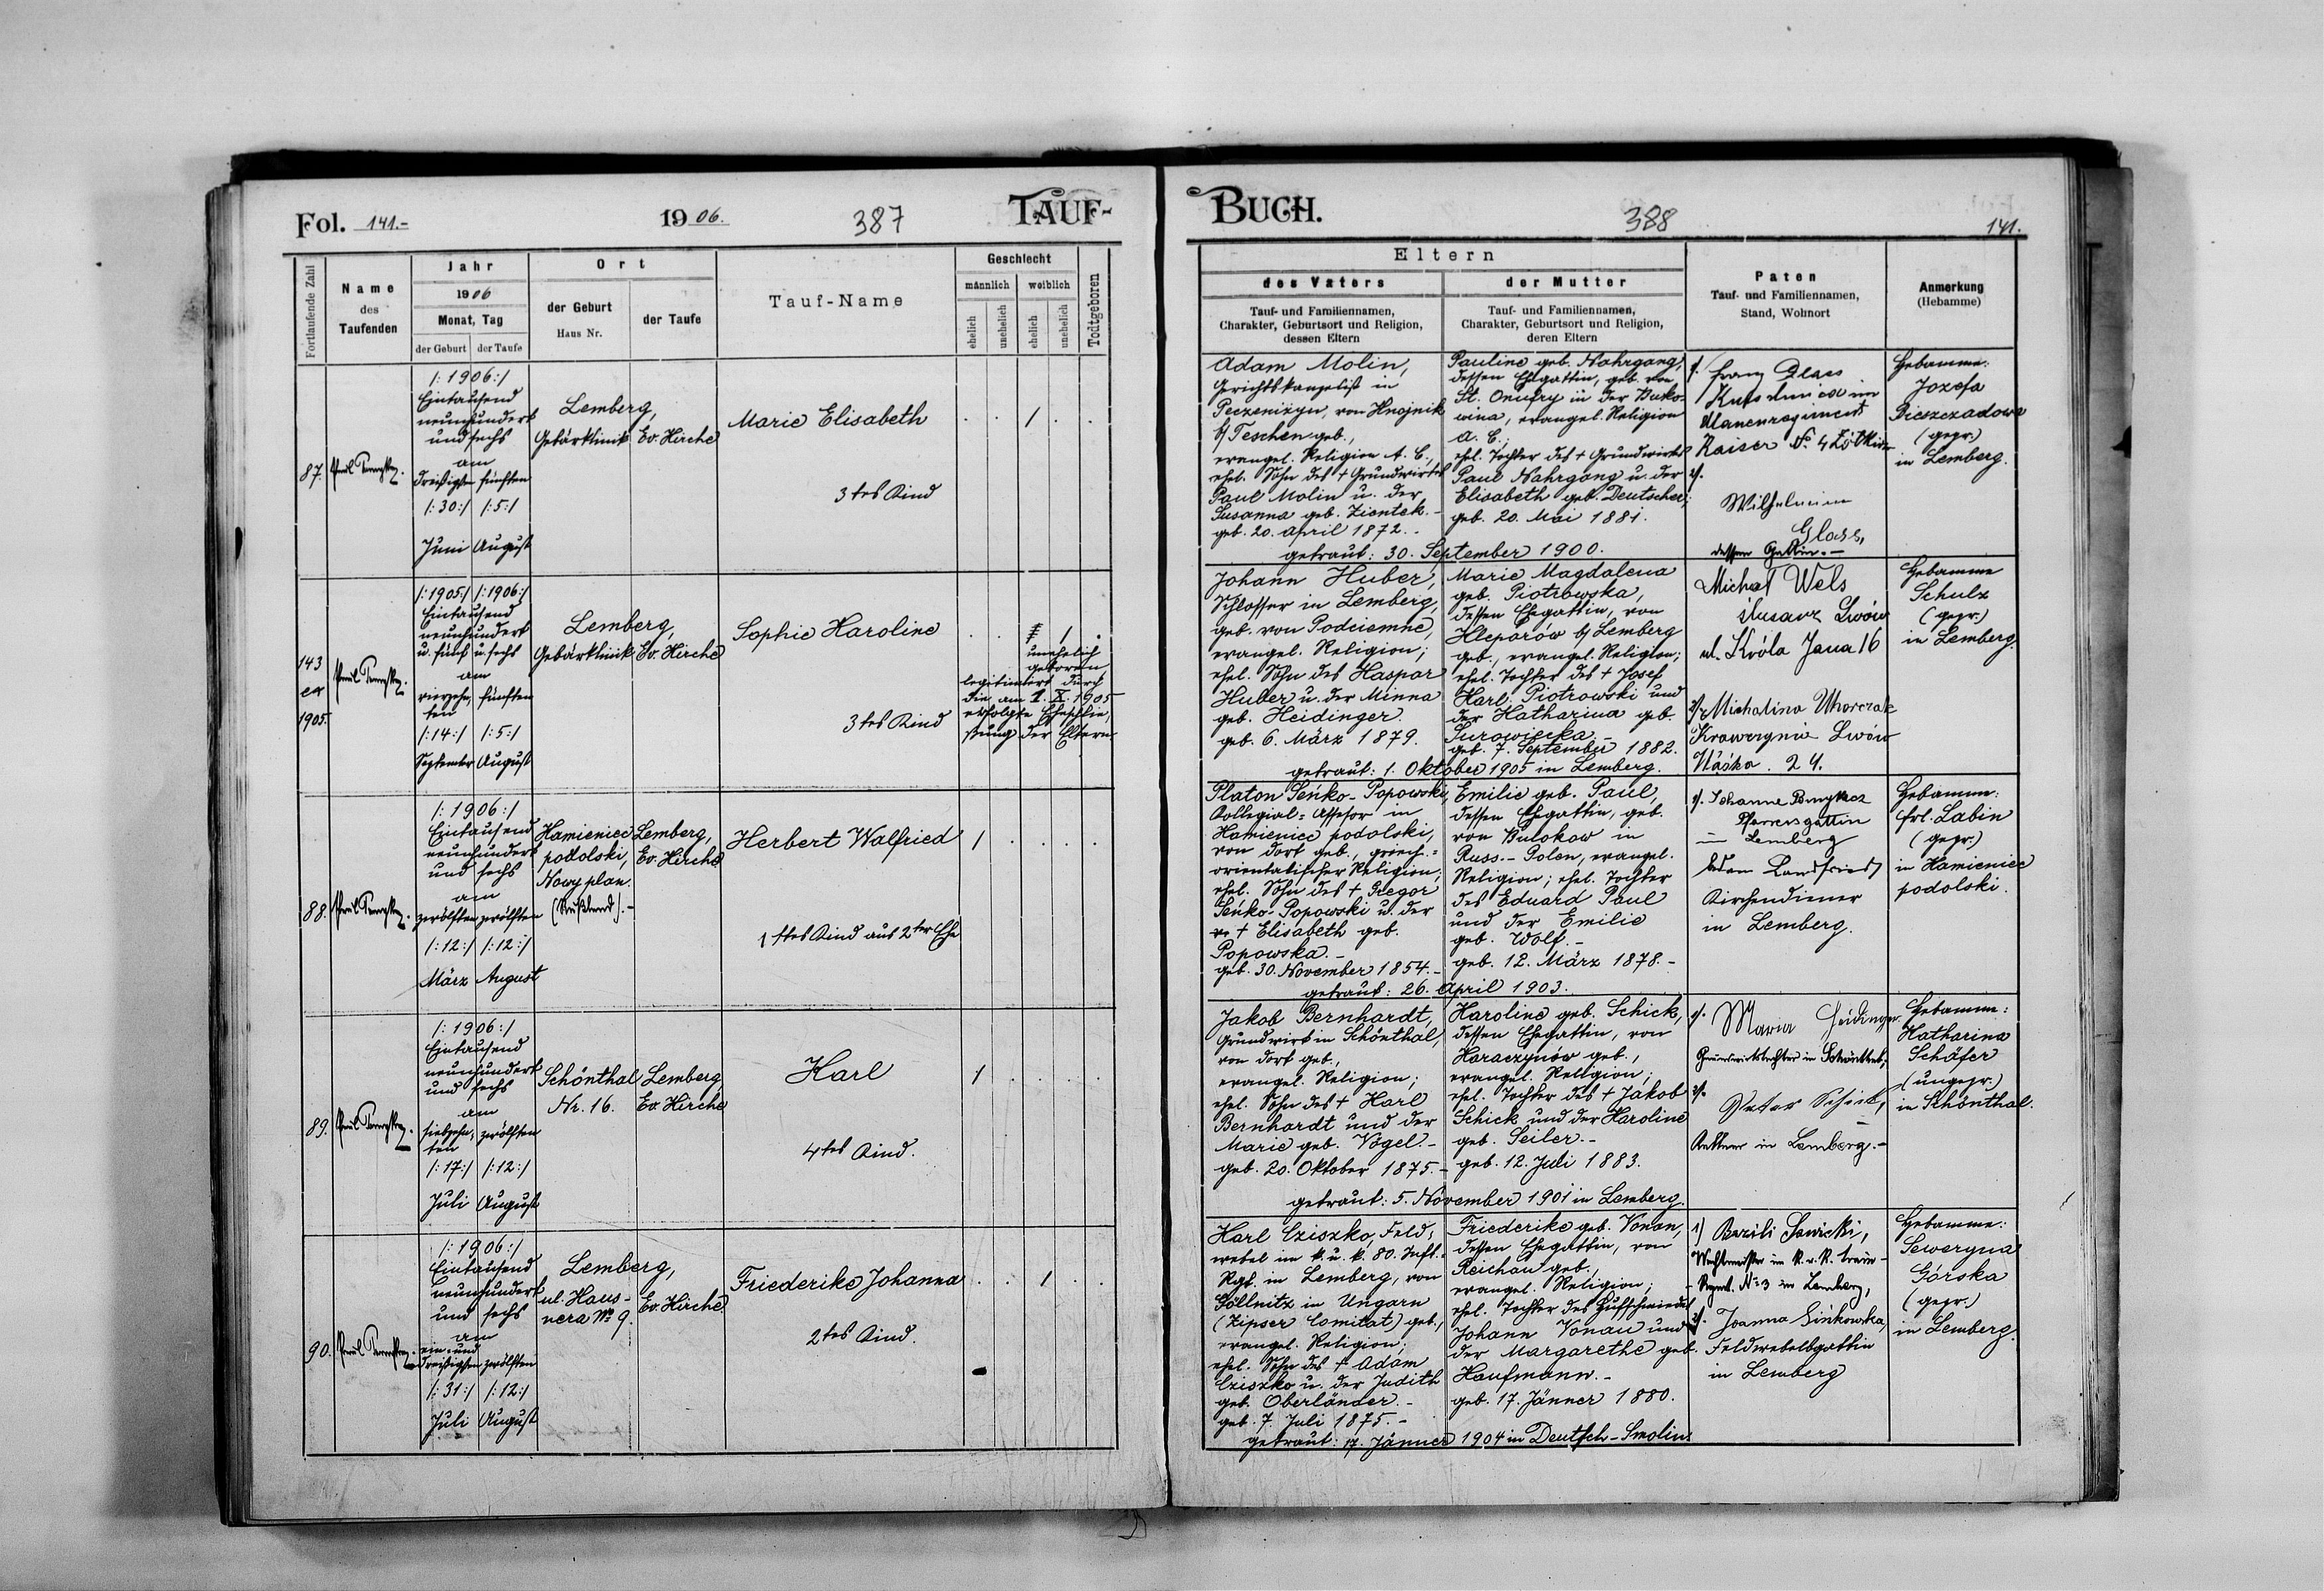 Fol. 141.-
1906.
387
TAUF-
Fortlaufende Zahl
Name
des
Taufenden
Jahr
1906
Monat, Tag
der Geburt
der Taufe
Ort
der Geburt
Haus Nr.
der Taufe
Tauf-Name
Geschlecht
männlich
weiblich
ehelich
unehelich
ehelich
unehelich
Todtgeboren
87.
/:1906:/
Eintausend
neunhundert
und sechs
am
dreißigsten fünften
/:30:/ /:5:/
Juni August
Lemberg,
Gebärklinik Ev. Kirche
Marie Elisabeth
3tes Kind
1
143
ex
1905.
/:1905:/ /:1906:/
Eintausend
neunhundert
u. fünf u. sechs
am
vierzehn, fünften
ten
/:14:/ /:5:/
September August
Lemberg,
Gebärklinik Ev. Kirche
Sophie Karoline
3tes Kind
1
unehelich
geboren
legitimiert durch
die am 1. X. 1905
erfolgte Eheschlie,
ßung der Eltern
88.
/:1906:/
Eintausend
neunhundert
und sechs
am
zwölften zwölften
/:12:/ /:12:/
März August
Kamieniec
podolski,
Nowy plan.
(Rußland).-
Lemberg,
Ev. Kirche
Herbert Walfried
1tes Kind aus 2ter Ehe
1
89.
/:1906:/
Eintausend
neunhundert
und sechs
am
siebzehn, zwölften
ten
/:17:/ /:12:/
Juli August
Schönthal
Nr. 16.
Lemberg,
Ev. Kirche
Karl
4tes Kind.
1
90.
/:1906:/
Eintausend
neunhundert
und sechs
am
ein und
dreißigsten zwölften
/:31:/ /:12:/
Juli August
Lemberg,
ul. Haus-
nera No 9.
Ev. Kirche
Friederike Johanna
2tes Kind.
1
BUCH.
388
141.
Eltern
des Vaters
Tauf- und Familiennamen,
Charakter, Geburtsort und Religion,
dessen Eltern
der Mutter
Tauf- und Familiennamen,
Charakter, Geburtsort und Religion,
deren Eltern
Paten
Tauf- und Familiennamen,
Stand, Wohnort
Anmerkung
(Hebamme)
Adam Molin,
Gerichtskanzelist in
Peczeniżyn, von Hnojnik
b/ Teschen geb.,
evangel. Religion A. C.,
ehel. Sohn des + Grundwirtes
Paul Molin u. der
Susanna geb. Zientek.-
geb. 20. April 1872.-
Pauline geb. Nahrgang,
dessen Ehegattin, geb. von
St. Onufry in der Buko-
wina, evangel. Religion
A. C.,
ehel. Tochter des + Grundwirtes
Paul Nahrgang u. der
Elisabeth geb. Deutscher;
geb. 20. Mai 1881.
getraut: 30. September 1900.
1. Franz
im
Ulanenregiment
Kaiser No. 4
2.
Wilhelmine
Glass,
dessen Gattin.-
Hebamme:
Jozefa
Pieszczadowa
(gepr.)
in Lemberg.
Johann Huber,
Schlosser in Lemberg,
geb. von Podciemne,
evangel. Religion;
ehel. Sohn des Kaspar
Huber u. der Minna
geb. Heidinger.
geb. 6. März 1879.
Marie Magdalena
geb. Piotrowska,
dessen Ehegattin, von
Kleparów b/ Lemberg
geb., evangel. Religion;
ehel. Tochter des + Josef
Karl Piotrowski und
der Katharina geb.
Surowiecka.-
geb. 7. September 1882.
getraut: 1. Oktober 1905 in Lemberg.
Michał Wels
ślusarz Lwów
ul. Króla Jana 16
2/. Michalina Uhorczak
Krawczynia Lwów
24.
Hebamme
Schulz
(gepr.)
in Lemberg.
Platon Seńko-Popowski,
Kollegial-Assessor in
Kamieniec podolski,
von dort geb., griech.-
orientalischer Religion;
ehel. Sohn des + Gregor
Seńko-Popowski u. der
+ Elisabeth geb.
Popowska.-
geb. 30. November 1854.-
Emilie geb. Paul,
dessen Ehegattin, geb.
von Bulokow in
Russ.-Polen, evangel.
Religion; ehel. Tochter
des Eduard Paul
und der Emilie
geb. Wolf.-
geb. 12. März 1878.-
getraut: 26. April 1903.
1/. Johanna
Pfarrersgattin
Lemberg
Adam Landfried
Kirchendiener
in Lemberg.
Hebamme:
Frl. Labin
(gepr.)
in Kamieniec
podolski.
Jakob Bernhardt,
Grundwirt in Schönthal,
von dort geb.,
evangel. Religion;
ehel. Sohn des + Karl
Bernhardt und der
Marie geb. Vogel.-
geb. 20. Oktober 1875.-
Karoline geb. Schick,
dessen Ehegattin, von
Karaczynów geb.,
evangel. Religion;
ehel. Tochter des + Jakob
Schick und der Karoline
geb. Seiler.-
geb. 12. Juli 1883.
getraut: 5. November 1901 in Lemberg.
1/. Maria Heidinger
Grundwirtstochter in Schönthal,
2/.
Peter Schick,
in Lemberg.-
Hebamme:
Katharina
Schäfer
(ungepr.)
in Schönthal.
Karl Cziszko, Feld,
webel im k. u. k. 80. Inft.
Rgt. in Lemberg, von
Göllnitz in Ungarn
(Zipser Comitat) geb.,
evangel. Religion;
ehel. Sohn des + Adam
Cziszko u. der Judith
geb. Oberländer.-
geb. 7. Juli 1875.-
Friederike geb. Vonau,
dessen Ehegattin, von
Reichau geb.,
evangel. Religion;
ehel. Tochter des Hufschmiedes
Johann Vonau und
der Margarethe geb.
Kaufmann.-
geb. 17. Jänner 1880.
getraut: 17. Jänner 1904 in Deutsch-Smolin.
1) Bazili Sawicki,
Wachtmeister im k. u. k. Train-
Regmt. No 3 in Lemberg,
2/. Joanna Sinkowska,
Feldwebelsgattin
in Lemberg
Hebamme:
Seweryna
Górska
(gepr.)
in Lemberg.